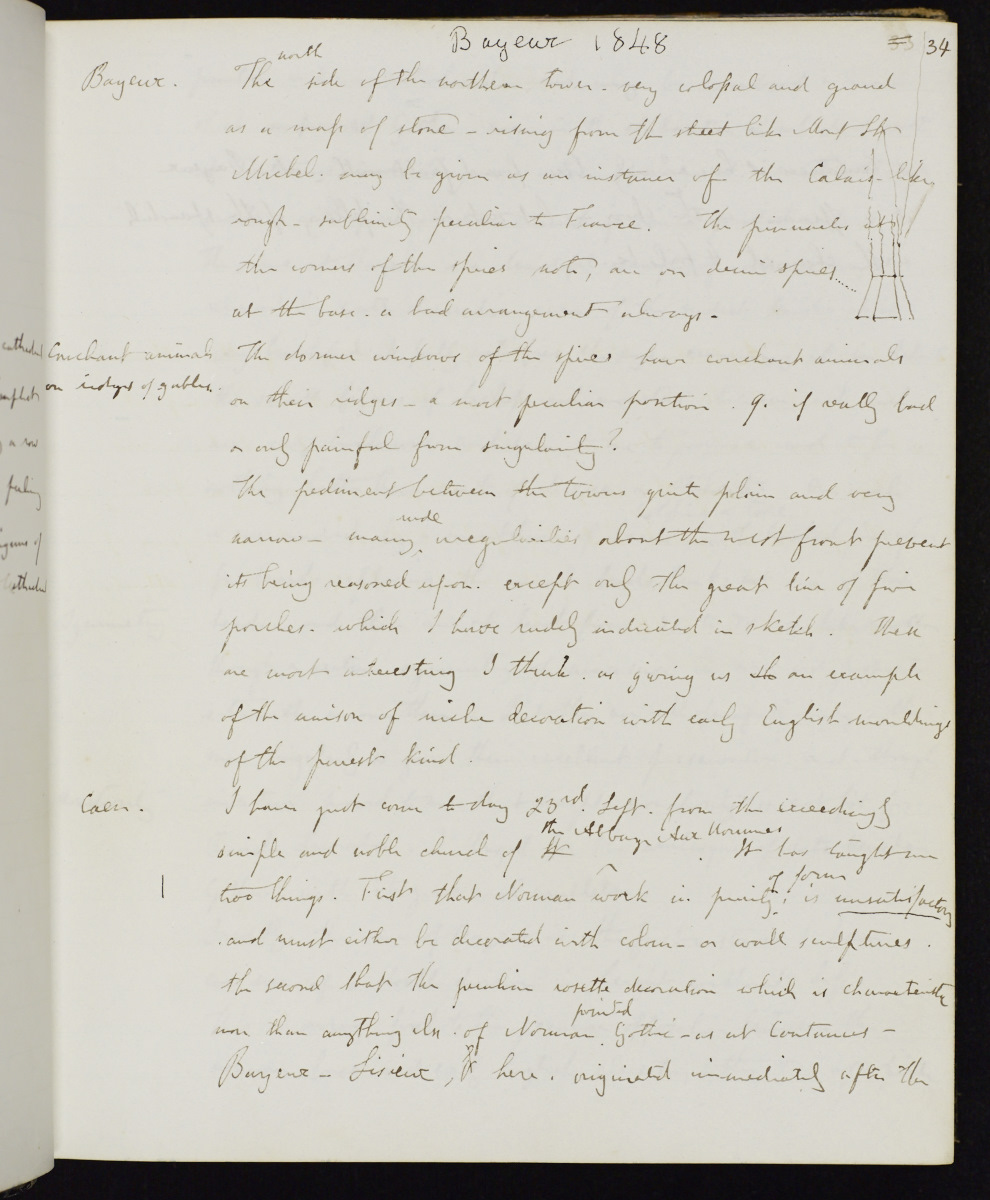 Bayeux 1848
33 34
Bayeux.
north
The side of the northern tower. very colossal and grand
as a mass of stone - rising from the street like Mont St
Michel. may be given as an instance of the Calais-like
rough - sublimity peculiar to France. The pinnacles at
the corners of the spires note, are on demi spires.....
at the base. a bad arrangement always -
Couchant animals
on ridges of gables.
The dormer windows of the spires have couchant animals
on their ridges - a most peculiar position. q. if really bad
or only painful from singularity?
The pediment between the towers quite plain and very
rude
narrow - many irregularities about the west front prevent
its being reasoned upon. except only the great line of five
porches. which I have rudely indicated in sketch. These
are most interesting I think. as giving us an example
of the unison of niche decoration with early English mouldings
of the purest kind.
Caen.
I have just come to day 23rd. Sept. from the exceedingly
the Abbaye Aux Hommes
simple and noble church of . It has taught me
of form
two things. First that Norman work in purity, is unsatisfactory
and must either be decorated with colour - or wall sculptures.
the second that the peculiar rosette decoration which is characteristic
pointed
more than anything else. of Norman Gothic - as at Coutances -
Bayeux - Lisieux, & here. originated immediately after the
cathedral
a row
feeling
of
cathedral